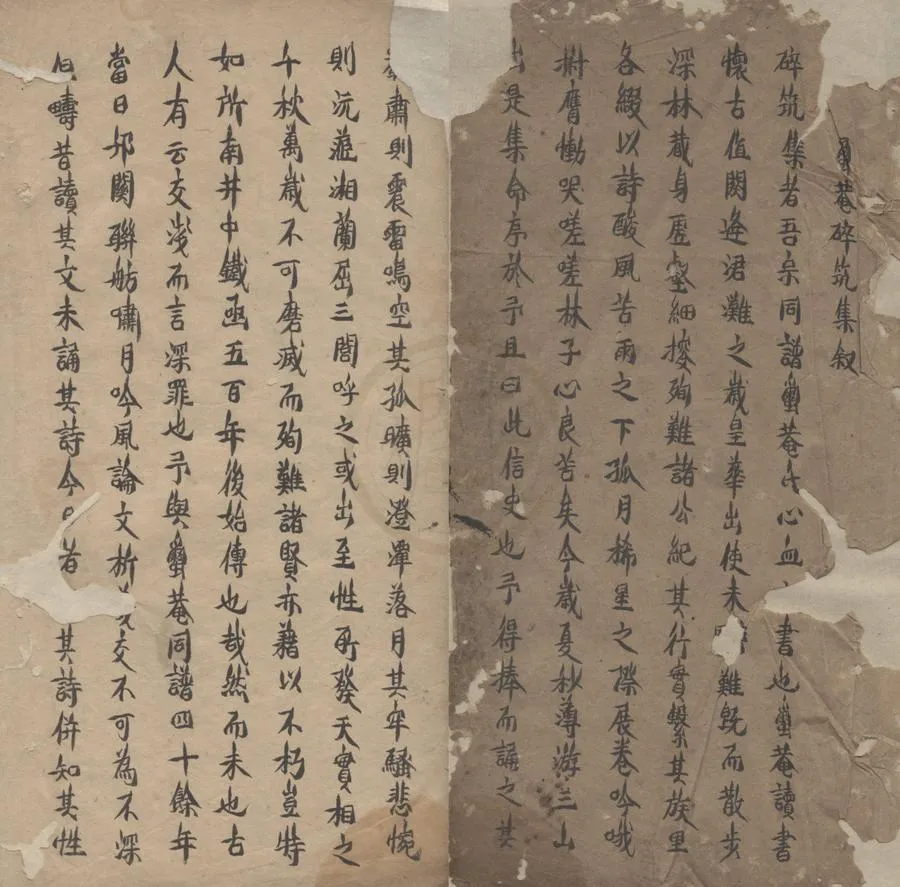 菴碎筑集叙
碎筑集者吾宗同譜蠒菴氏心血書也蠒菴讀書
懷古值閼逄涒灘之歲皇華出使未難既而散步
深林藏身虛壑細搜殉難諸公紀其行實繫其族里
各綴以詩酸風苦雨之下孤月稀星之際展卷吟哦
拊膺慟哭嗟嗟林子心良苦矣今歲夏秒薄游三山
出是集命序於予且曰此信史也予得捧而誦之其
肅則震雷鳴空其孤曠則澄潭落月其牢騷悲惋
則沅蒞湘蘭屈三閭呼之或出至性所發天實相之
千秋萬歲不可磨滅而殉難諸賢亦藉以不朽豈特
如所南井中鐵函五百年後始傳也哉然而未也古
人有云交淺而言深罪也予與蠒菴同譜四十餘年
當日邗關聯舫嘯月吟風論文析交不可為不深
疇昔讀其文未誦其詩今者其詩併知其性